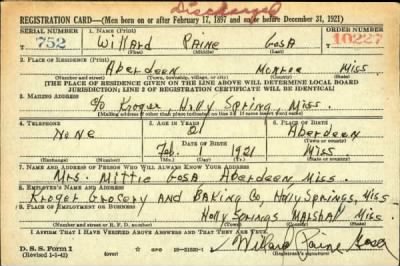 Discharged
REGISTRATION CARD—(Men born on or after February 17, 1897 and on or before December 31, 1921)
SERIAL NUMBER 1. NAME (Print) ORDER NUMBER
T 752 Willard Paine Gosa 10227
(First) (Middle) (Last)
2. PLACE OF RESIDENCE (Print)
Aberdeen Monroe Miss
(Number and street) (Town, township, village, or city) (County) (State)
[THE PLACE OF RESIDENCE GIVEN ON THE LINE ABOVE WILL DETERMINE LOCAL BOARD
JURISDICTION; LINE 2 OF REGISTRATION CERTIFICATE WILL BE IDENTICAL]
3. MAILING ADDRESS
c/o Kroger Holly Spring, Miss.
[Mailing address if other than place indicated on line 2. If same insert word same]
4. TELEPHONE 5. AGE IN YEARS 6. PLACE OF BIRTH
None 21 Aberdeen
DATE OF BIRTH (Town or county)
Feb. 1 1921 Miss.
(Exchange) (Number) (Mo.) (Day) (Yr.) (State or country)
7. NAME AND ADDRESS OF PERSON WHO WILL ALWAYS KNOW YOUR ADDRESS
Mrs. Mittie Gosa Aberdeen Miss.
8. EMPLOYER'S NAME AND ADDRESS
Kroger Grocery AND BAKING Co, Holly Springs, Miss.
9. PLACE OF EMPLOYMENT OR BUSINESS
Holly Springs Marshal Miss.
(Number and street or R. F. D. number) (Town) (County) (State)
I AFFIRM THAT I HAVE VERIFIED ABOVE ANSWERS AND THAT THEY ARE TRUE.
D. S. S. Form 1 Willard Paine Gosa
(Revised 1-1-42) (over) (Registrant's signature)